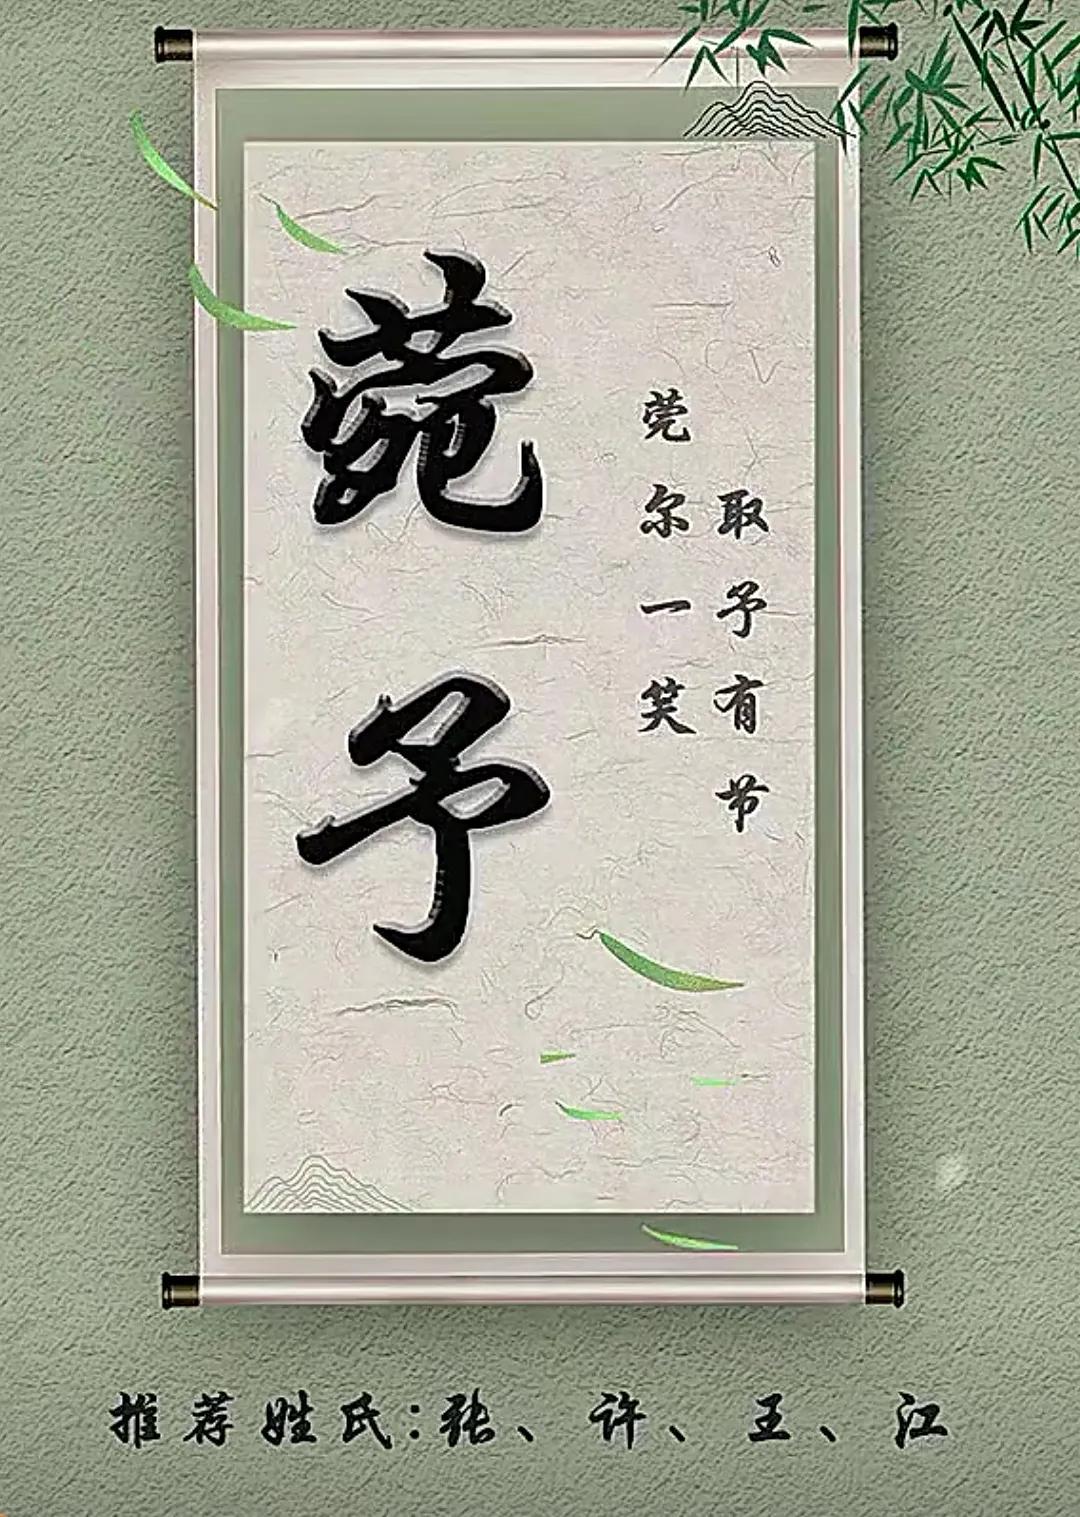 菀予
莞尔一笑
取予有节
推荐姓氏:张、许、王、江